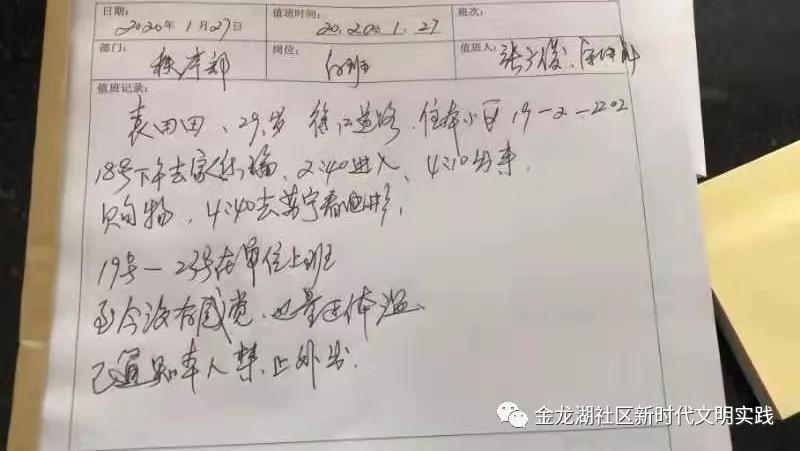 日期: 2020年1月27日 值班时间: 2020.1.27 班次:
部门: 秩序部 岗位: 白班 值班人: 张广俊、
值班记录:
袁田田、29岁 徐工道路 住本小区19-2-1202
18号下午去家乐福、2:40进入、4:10出来.
购物, 4:40去苏宁看电影,
19号-23号在单位上班
至今没有感觉, 也量过体温、
已通知本人禁止外出.
金龙湖社区新时代文明实践